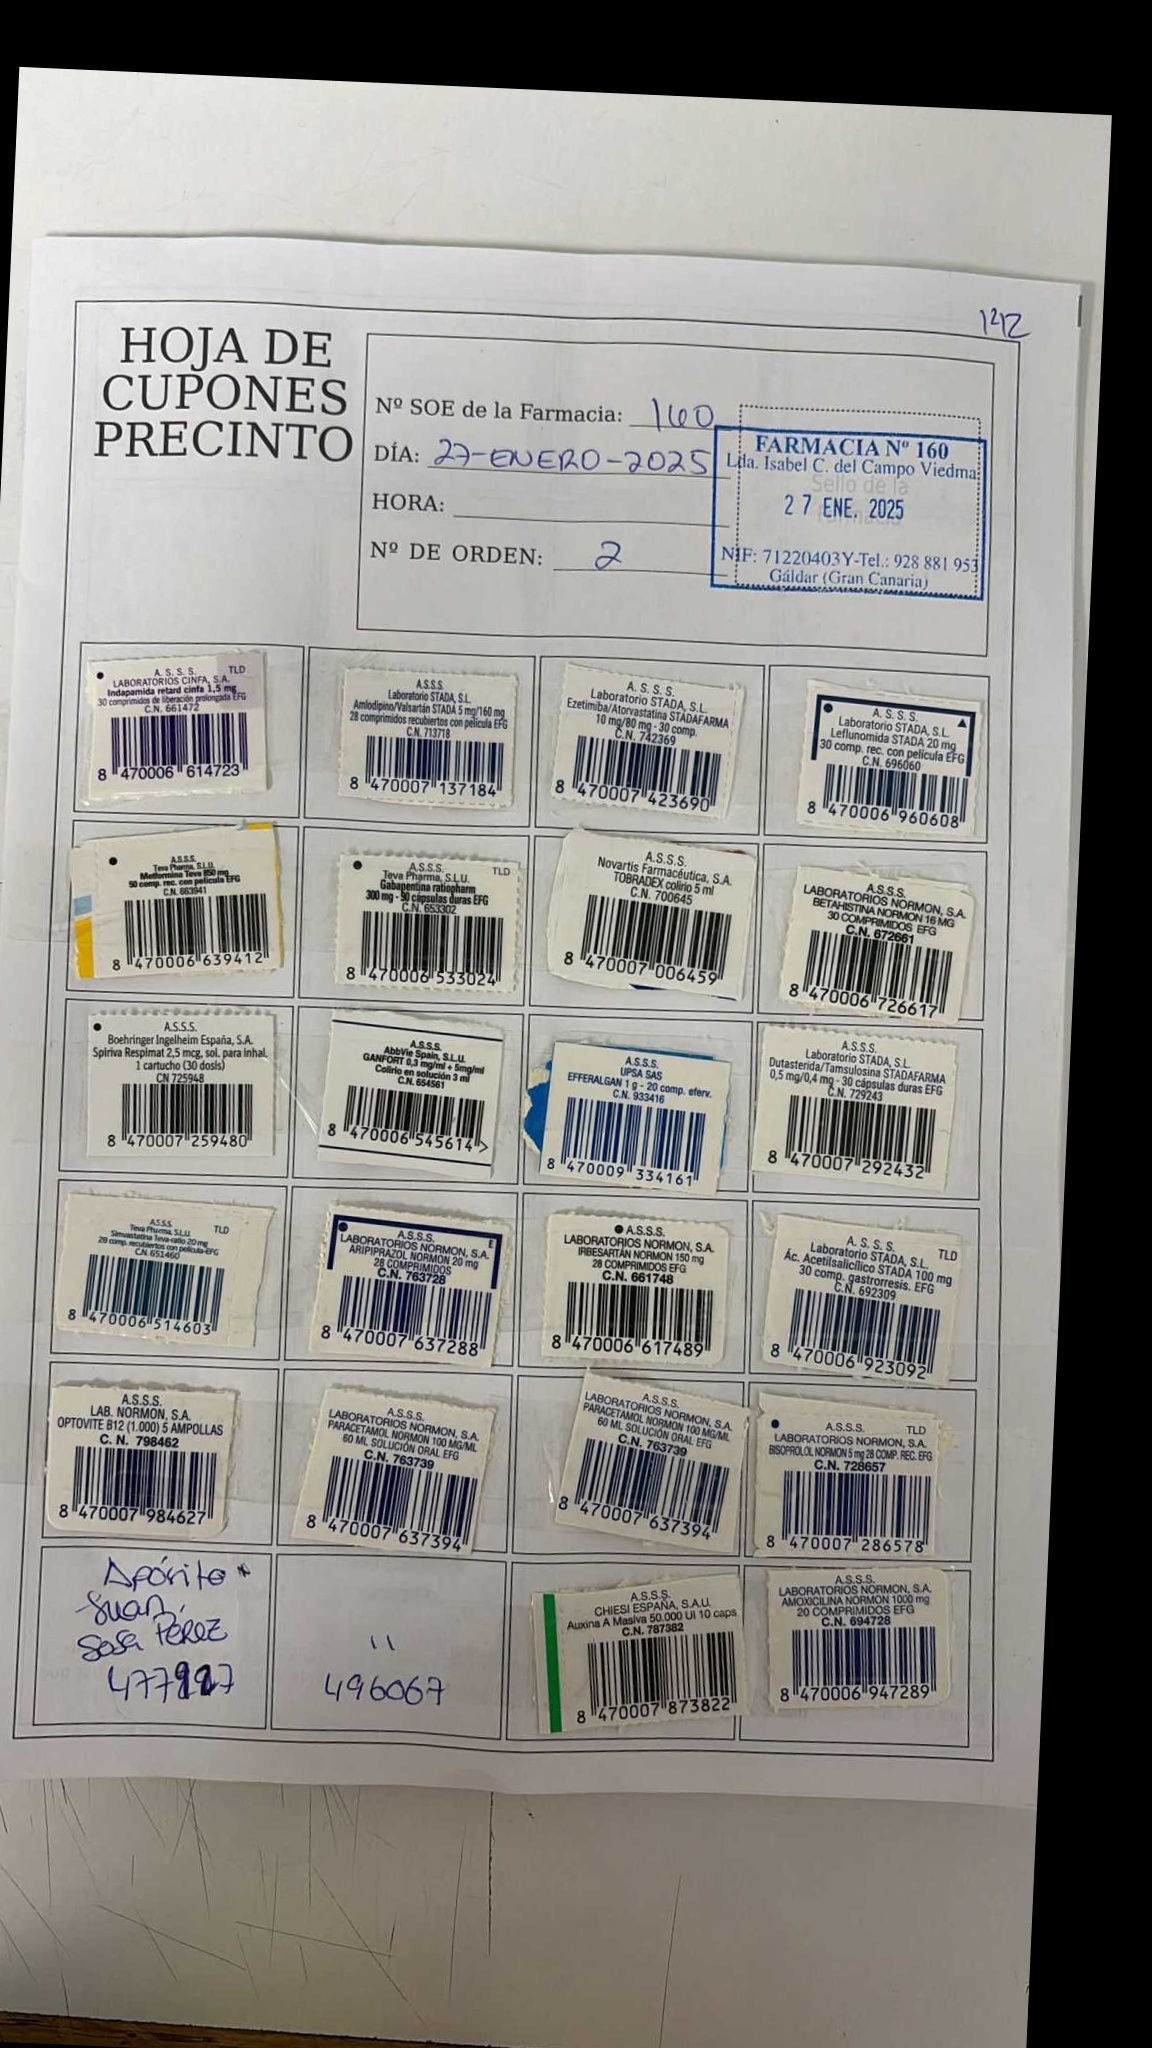 1212
HOJA DE
CUPONES
PRECINTO
Nº SOE de la Farmacia: 160
DÍA: 27-ENERO-2025
HORA:
Nº DE ORDEN: 2
Sello de la
Farmacia
FARMACIA Nº 160
Lda. Isabel C. del Campo Viedma
27 ENE. 2025
NIF: 71220403Y-Tel.: 928 881 953
Gáldar (Gran Canaria)
A. S. S. S. TLD
LABORATORIOS CINFA, S.A.
Indapamida retard cinfa 1,5 mg
30 comprimidos de liberación prolongada EFG
C.N. 661472
8 470006 614723
A.S.S.S.
Laboratorio STADA, S.L.
Amlodipino/Valsartán STADA 5 mg/160 mg
28 comprimidos recubiertos con película EFG
C.N. 713718
8 470007 137184
A. S. S. S.
Laboratorio STADA, S.L.
Ezetimiba/Atorvastatina STADAFARMA
10 mg/80 mg - 30 comp.
C.N. 742369
8 470007 423690
A. S. S. S.
Laboratorio STADA, S.L.
Leflunomida STADA 20 mg
30 comp. rec. con película EFG
C.N. 696060
8 470006 960608
A.S.S.S.
Teva Pharma, S.L.U.
Metformina Teva 850 mg
50 comp. rec. con película EFG
C.N. 663941
8 470006 639412
A.S.S.S. TLD
Teva Pharma, S.L.U.
Gabapentina ratiopharm
300 mg - 90 cápsulas duras EFG
C.N. 653302
8 470006 533024
A.S.S.S.
Novartis Farmacéutica, S.A.
TOBRADEX colirio 5 ml
C.N. 700645
8 470007 006459
A.S.S.S.
LABORATORIOS NORMON, S.A.
BETAHISTINA NORMON 16 MG
30 COMPRIMIDOS EFG
C.N. 672661
8 470006 726617
A.S.S.S.
Boehringer Ingelheim España, S.A.
Spiriva Respimat 2,5 mcg, sol. para inhal.
1 cartucho (30 dosis)
CN 725948
8 470007 259480
A.S.S.S.
AbbVie Spain, S.L.U.
GANFORT 0,3 mg/ml + 5mg/ml
Colirio en solución 3 ml
C.N. 654561
8 470006 545614 >
A.S.S.S.
UPSA SAS
EFFERALGAN 1 g - 20 comp. eferv.
C.N. 933416
8 470009 334161
A.S.S.S.
Laboratorio STADA, S.L.
Dutasterida/Tamsulosina STADAFARMA
0,5 mg/0,4 mg - 30 cápsulas duras EFG
C.N. 729243
8 470007 292432
A.S.S.S. TLD
Teva Pharma, S.L.U.
Simvastatina Teva-ratio 20 mg
28 comp. recubiertos con película-EFG
C.N. 651460
8 470006 514603
A.S.S.S. E
LABORATORIOS NORMON, S.A.
ARIPIPRAZOL NORMON 20 mg
28 COMPRIMIDOS
C.N. 763728
8 470007 637288
A.S.S.S.
LABORATORIOS NORMON, S.A.
IRBESARTÁN NORMON 150 mg
28 COMPRIMIDOS EFG
C.N. 661748
8 470006 617489
A. S. S. S. TLD
Laboratorio STADA, S.L.
Ác. Acetilsalicílico STADA 100 mg
30 comp. gastrorresis. EFG
C.N. 692309
8 470006 923092
A.S.S.S.
LAB. NORMON, S.A.
OPTOVITE B12 (1.000) 5 AMPOLLAS
C. N. 798462
8 470007 984627
A.S.S.S.
LABORATORIOS NORMON, S.A.
PARACETAMOL NORMON 100 MG/ML
60 ML SOLUCIÓN ORAL EFG
C.N. 763739
8 470007 637394
A.S.S.S.
LABORATORIOS NORMON, S.A.
PARACETAMOL NORMON 100 MG/ML
60 ML SOLUCIÓN ORAL EFG
C.N. 763739
8 470007 637394
A.S.S.S. TLD
LABORATORIOS NORMON, S.A.
BISOPROLOL NORMON 5 mg 28 COMP. REC. EFG
C.N. 728657
8 470007 286578
Apósito *
Juan,
Sosa PÉREZ
"
496067
A.S.S.S.
CHIESI ESPAÑA, S.A.U.
Auxina A Masiva 50.000 UI 10 caps
C.N. 787382
8 470007 873822
A.S.S.S.
LABORATORIOS NORMON, S.A.
AMOXICILINA NORMON 1000 mg
20 COMPRIMIDOS EFG
C.N. 694728
8 470006 947289